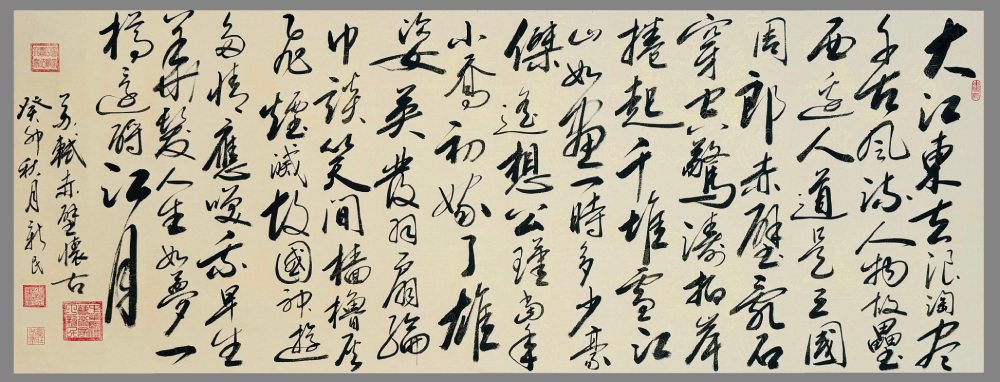 大江東去浪淘尽
千古風流人物故壘
西邊人道是三國
周郎赤壁亂石
穿空驚濤拍岸
捲起千堆雪江
山如畫一時多少豪
傑遙想公瑾當年
小喬初嫁了雄
姿英發羽扇綸
巾談笑間檣櫓灰
飛煙滅故國神遊
多情應笑我早生
華髮人生如夢一
樽還酹江月
蘇軾赤壁懷古
癸卯秋月新民